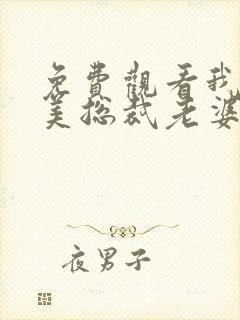 免費觀看我
美总裁老婆
夜男子